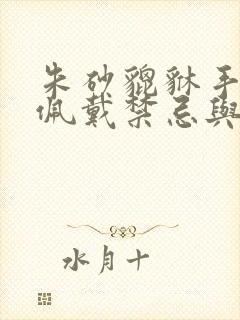 朱砂貔貅手
佩戴禁忌與
水月十